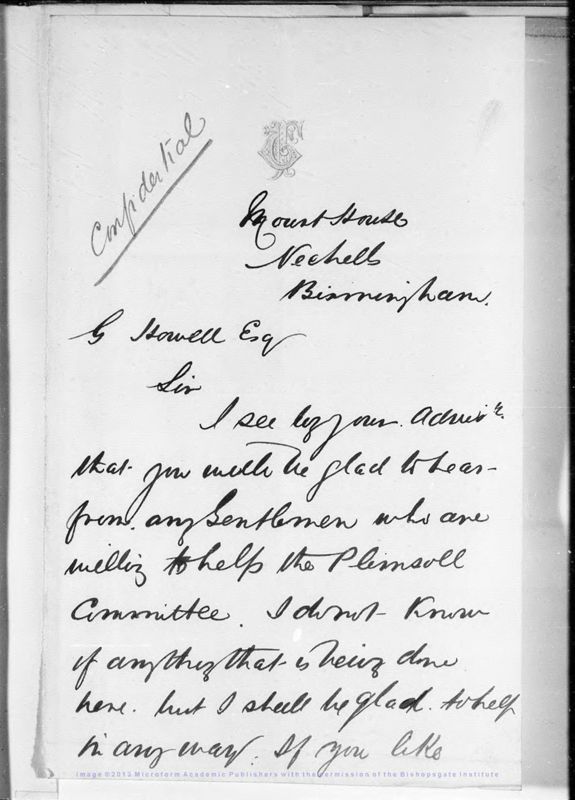 Confidential
Mount House
Nechells
Birmingham.
G Howell Esq
Sir
I see by your
that you will be glad to hear
from any Gentlemen who are
willing to help the Plimsoll
Committee. I do not know
if anything that is being done
here. but I shall be glad to help
in any way. If you like
Image ©2013 Microform Academic Publishers with the permission of the Bishopsgate Institute